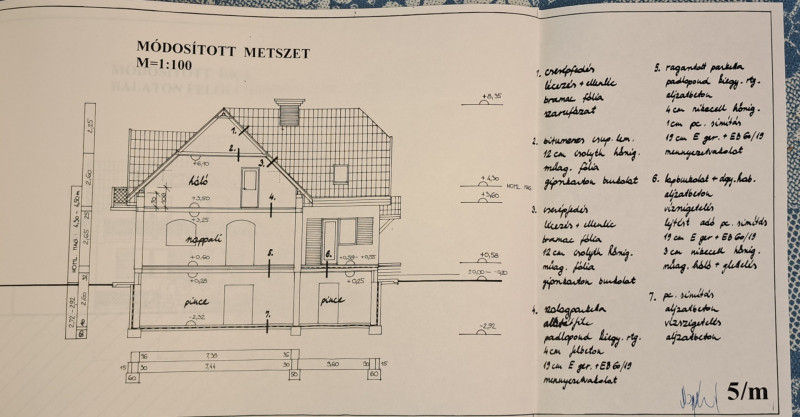 MÓDOSÍTOTT METSZET
M=1:100
+8,35
2,25
1.
2.
3.
+6,10
háló
2,60
+4,50
+3,60
4.
+3,50
+3,25
25
2,65
nappali
+0,60
5.
6.
+0,58
+0,28
+0,25
2,60
pince
pince
-2,32
7.
-2,92
36
7,38
36
15
30
7,44
30
3,60
30
15
60
80
60
1. cserépfedés
lécezés + ellenléc
bramac fólia
szarufázat
2. bitumenes csup. lem.
12 cm isolyth hőszig.
műag. fólia
gipszkarton burkolat
3. cserépfedés
lécezés + ellenléc
bramac fólia
12 cm isolyth hőszig.
műag. fólia
gipszkarton burkolat
4. szalagparketta
alátétfilc
padlopond kiegy. rtg.
4 cm jelbeton
19 cm E ger. + EB 60/19
mennyezetvakolat
5. ragasztott parketta
padlopond kiegy. rtg.
aljzatbeton
4 cm nikecell hőszig.
1 cm pc. simítás
19 cm E ger. + EB 60/19
mennyezetvakolat
6. lapburkolat + ágy. hab.
aljzatbeton
vízszigetelés
lejtést adó pc. simítás
19 cm E ger + EB 60/19
3 cm nikecell hőszig.
műag. háló + glettelés
7. pc. simítás
aljzatbeton
vízszigetelés
aljzatbeton
5/m